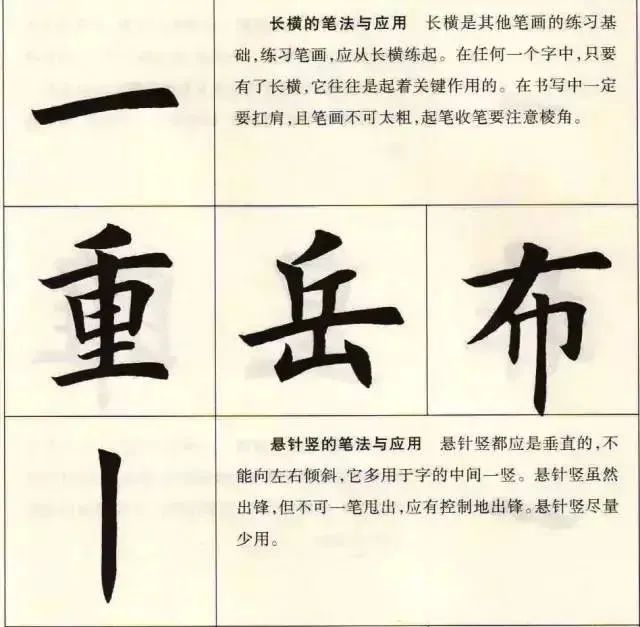 一
长横的笔法与应用 长横是其他笔画的练习基
础,练习笔画,应从长横练起。在任何一个字中,只要
有了长横,它往往是起着关键作用的。在书写中一定
要扛肩,且笔画不可太粗,起笔收笔要注意棱角。
重 岳 布
丨
悬针竖的笔法与应用 悬针竖都应是垂直的,不
能向左右倾斜,它多用于字的中间一竖。悬针竖虽然
出锋,但不可一笔甩出,应有控制地出锋。悬针竖尽量
少用。